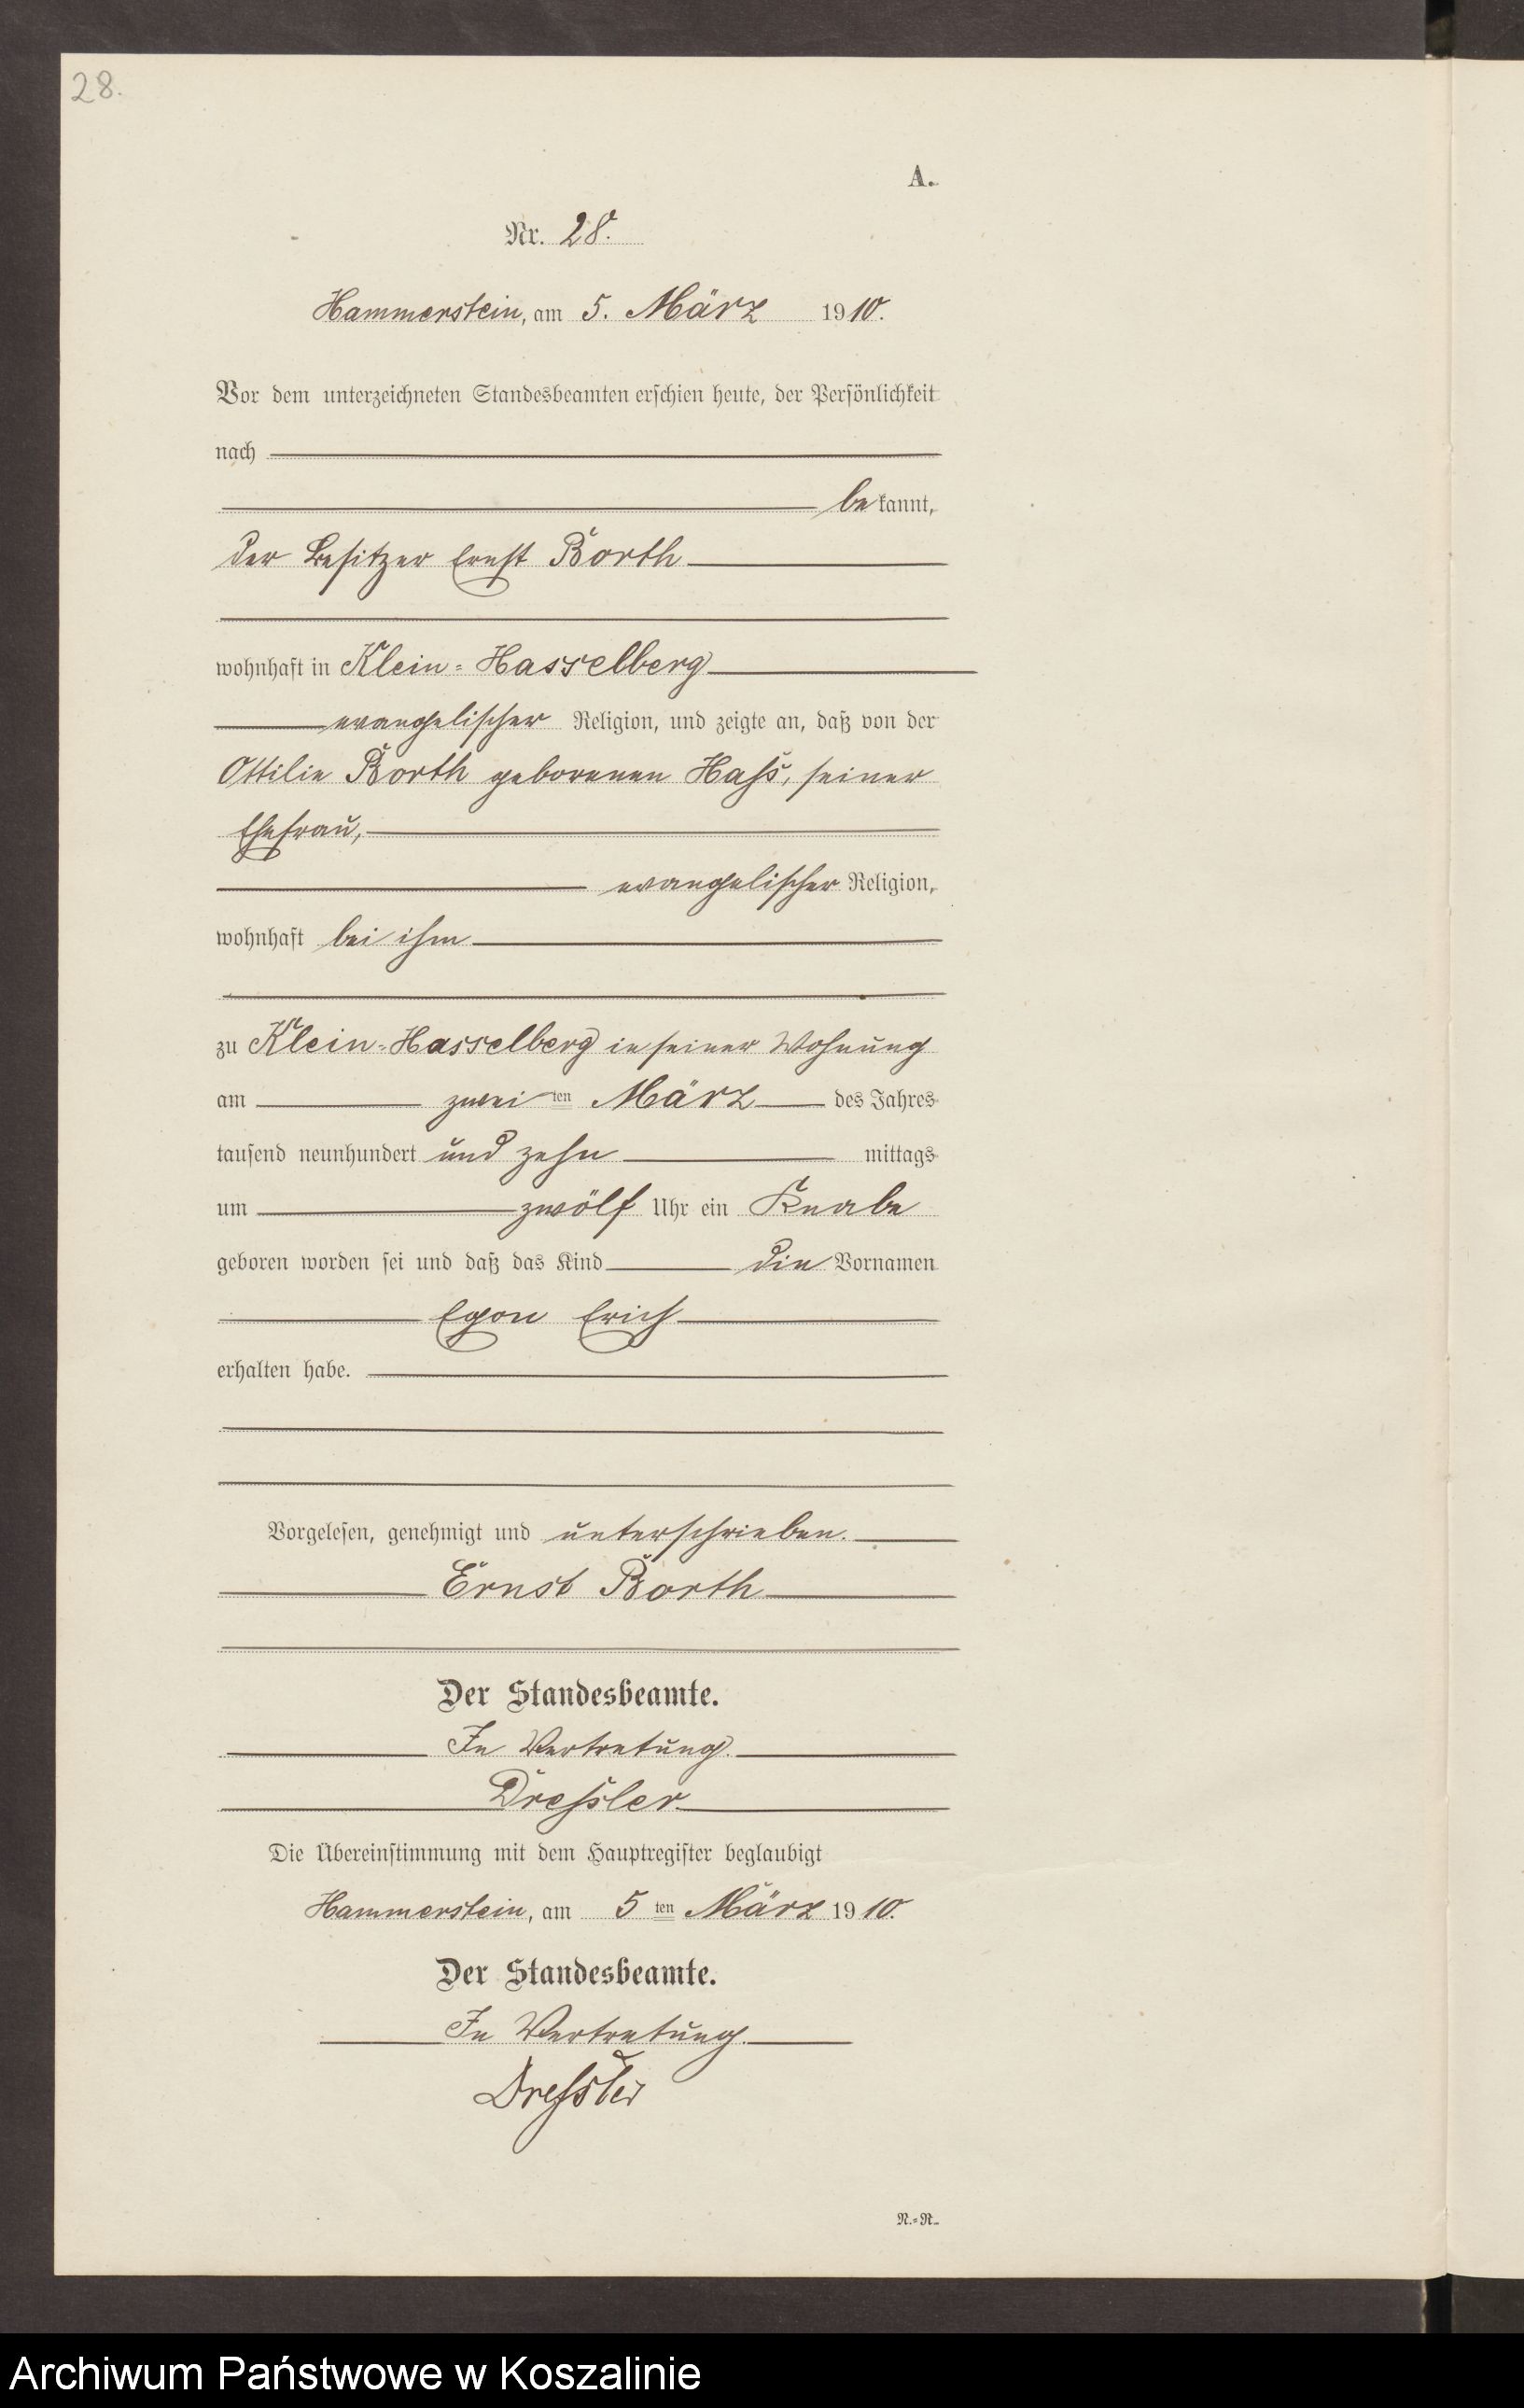 28.
A.
Nr. 28.
Hammerstein, am 5. März 1910.
Vor dem unterzeichneten Standesbeamten erschien heute, der Persönlichkeit
nach
bekannt,
der Besitzer Ernst Borth
wohnhaft in Klein-Hasselberg
evangelischer Religion, und zeigte an, daß von der
Ottilie Borth geborenen Haß, seiner
Ehefrau,
evangelischer Religion,
wohnhaft bei ihm
zu Klein-Hasselberg in seiner Wohnung
am zweiten März des Jahres
tausend neunhundert und zehn mittags
um zwölf Uhr ein Knabe
geboren worden sei und daß das Kind die Vornamen
Egon Erich
erhalten habe.
Vorgelesen, genehmigt und unterschrieben.
Ernst Borth
Der Standesbeamte.
In Vertretung.
Dreßler
Die Übereinstimmung mit dem Hauptregister beglaubigt
Hammerstein, am 5ten März 1910.
Der Standesbeamte.
In Vertretung.
Dreßler
N.-R.
Archiwum Państwowe w Koszalinie